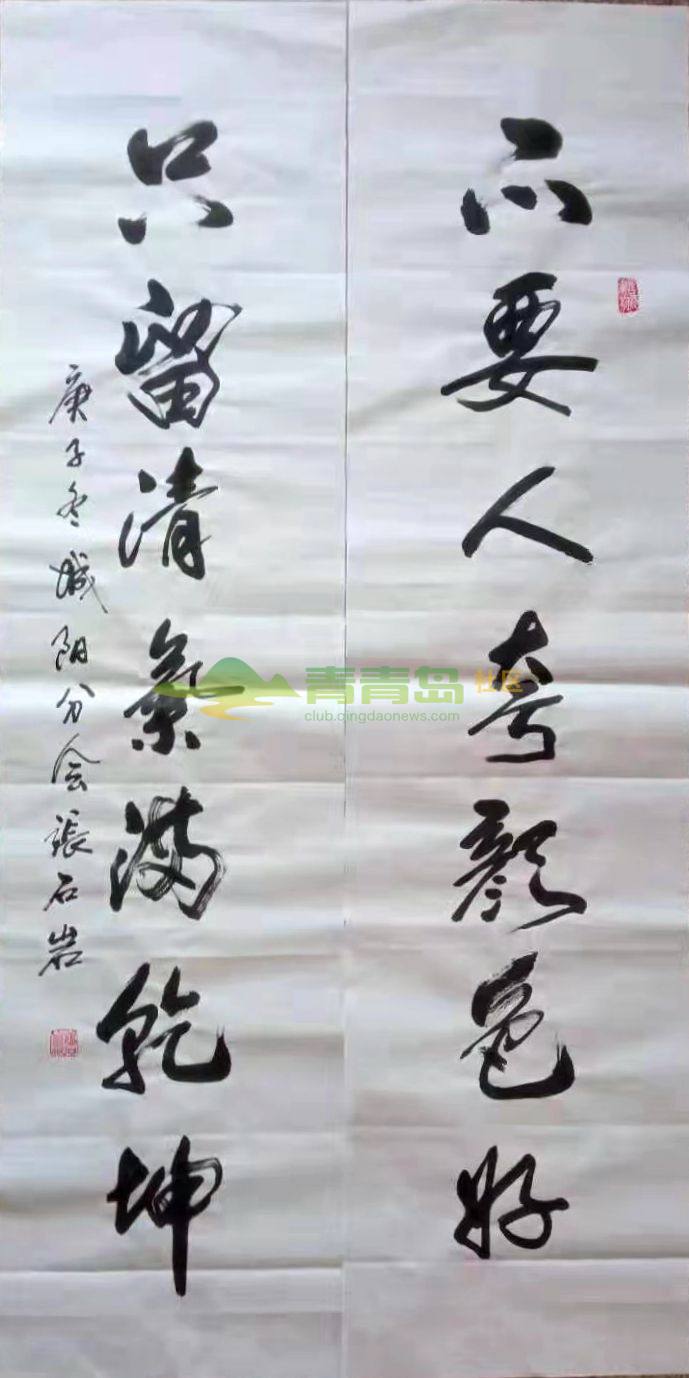 不要人夸颜色好
只留清气满乾坤
庚子冬城阳分会張石岩
青青岛社区
club.qingdaonews.com